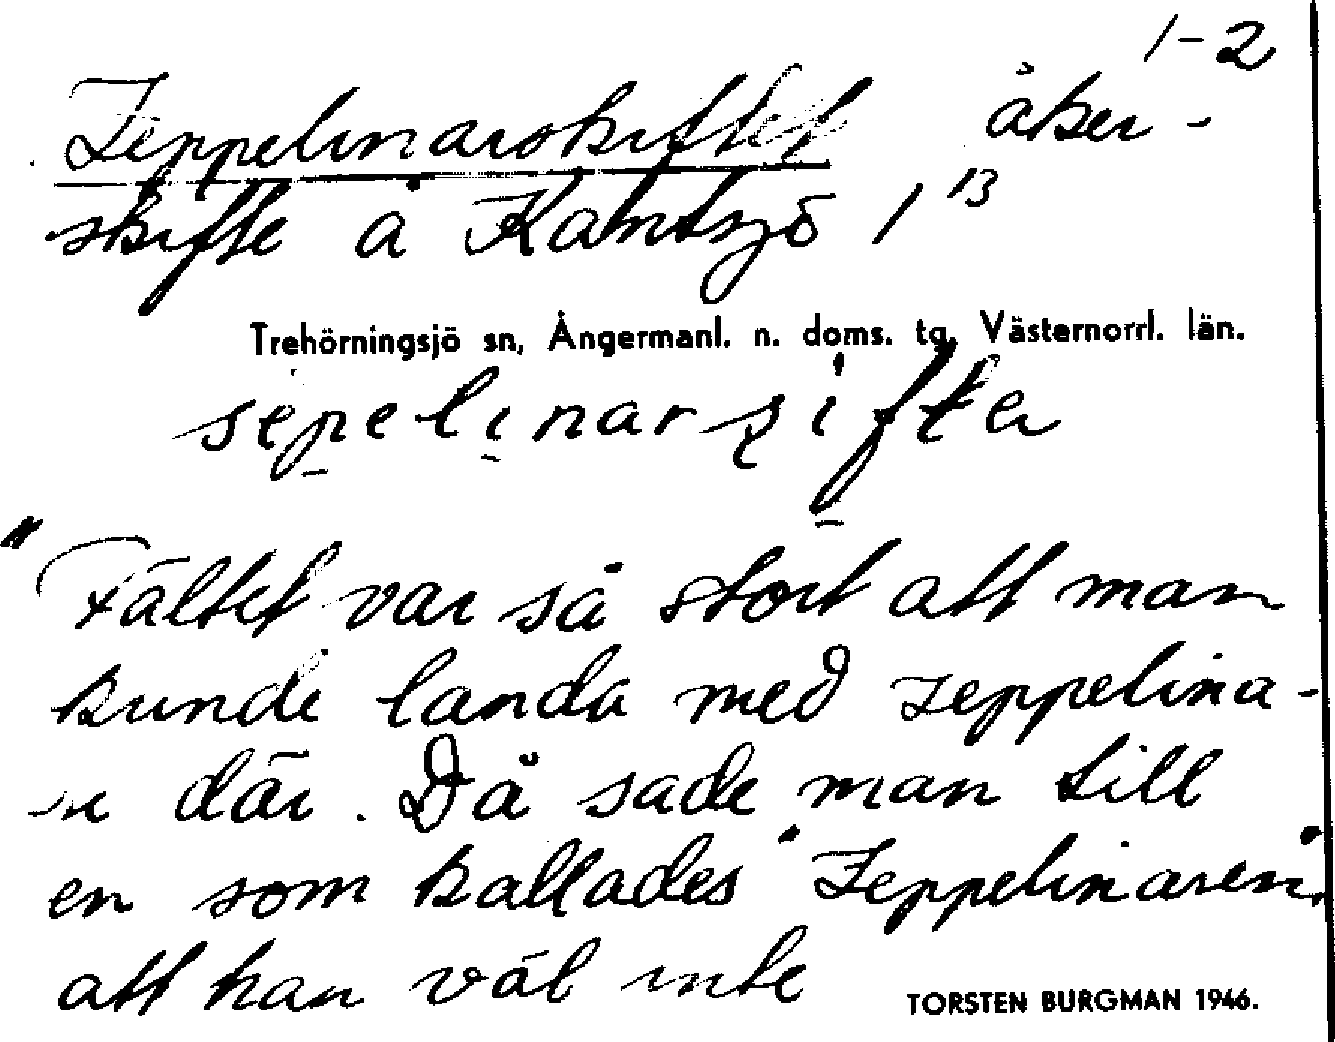 1-2
Zeppelinarskiftet åker-
skifte å Kantsjö 1 13
Trehörningsjö sn, Ångermanl. n. doms. tg, Västernorrl. län.
sepelinarsifta
"Fältet var så stort att man
kunde landa med zeppelina-
re där. Då sade man till
en som kallades "Zeppelinaren",
att han väl inte
TORSTEN BURGMAN 1946.